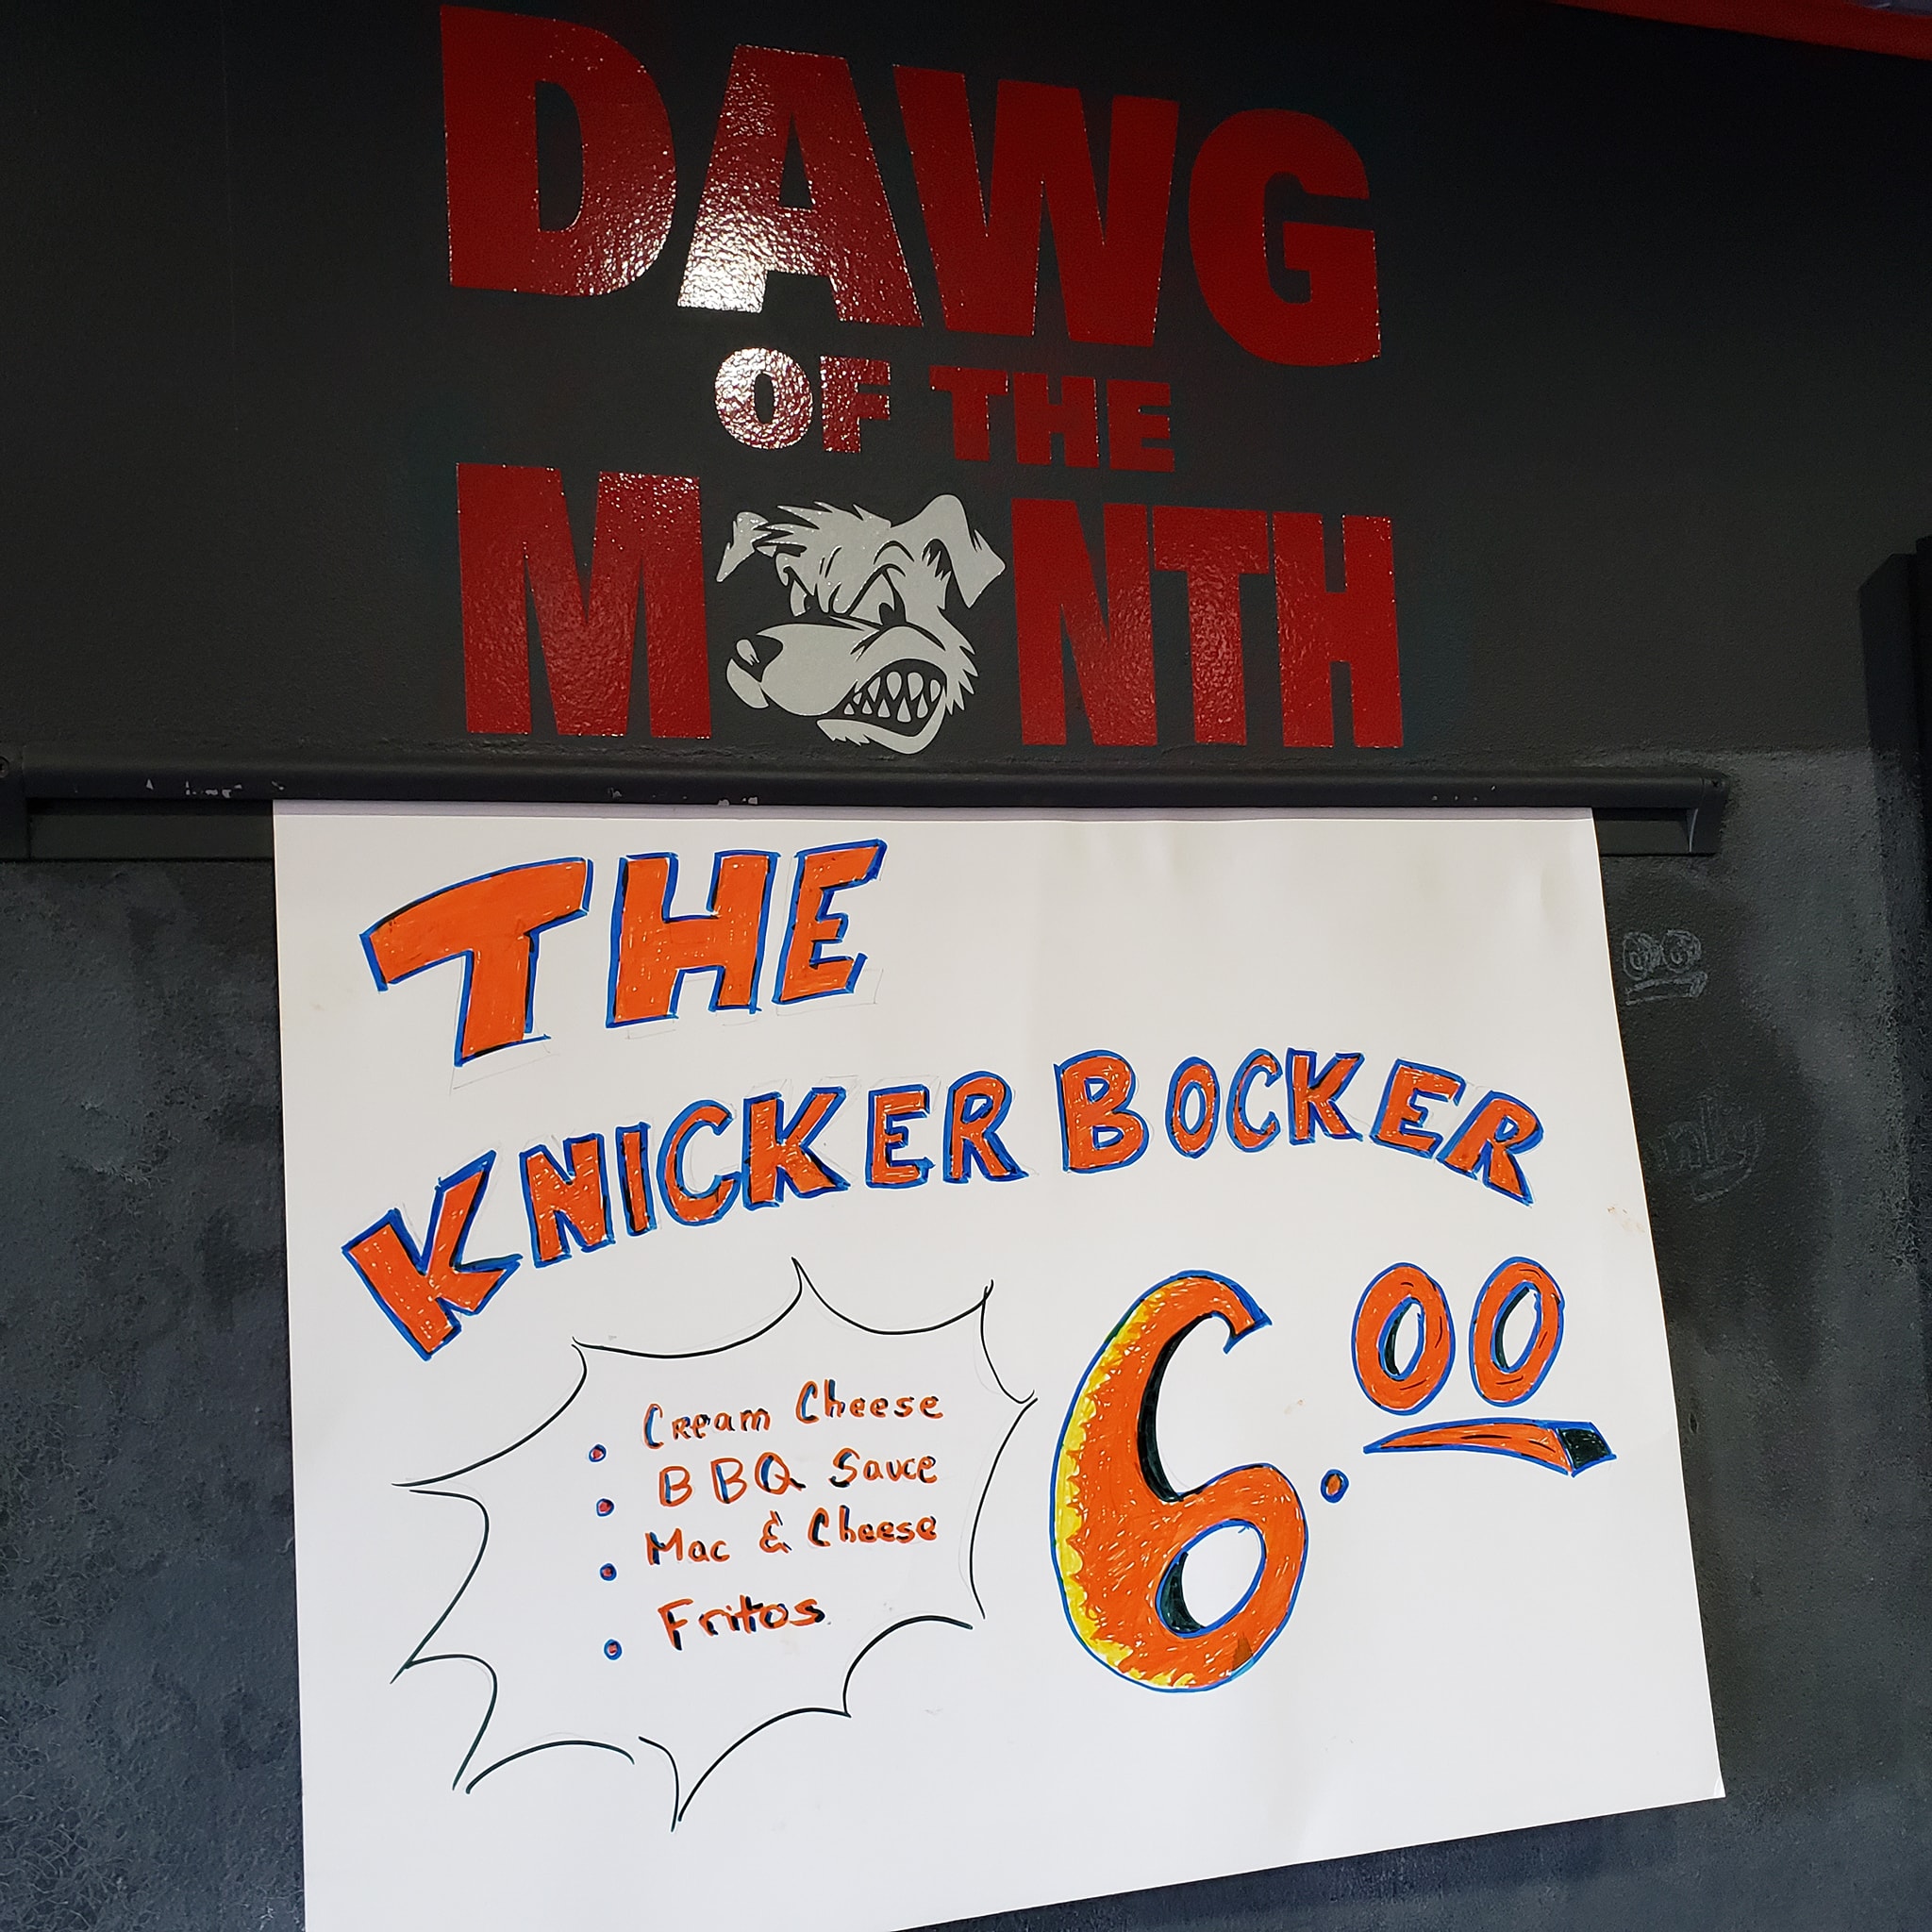 DAWG
OF THE
MONTH
THE
KNICKER BOCKER
6.00
Cream Cheese
BBQ Sauce
Mac & Cheese
Fritos